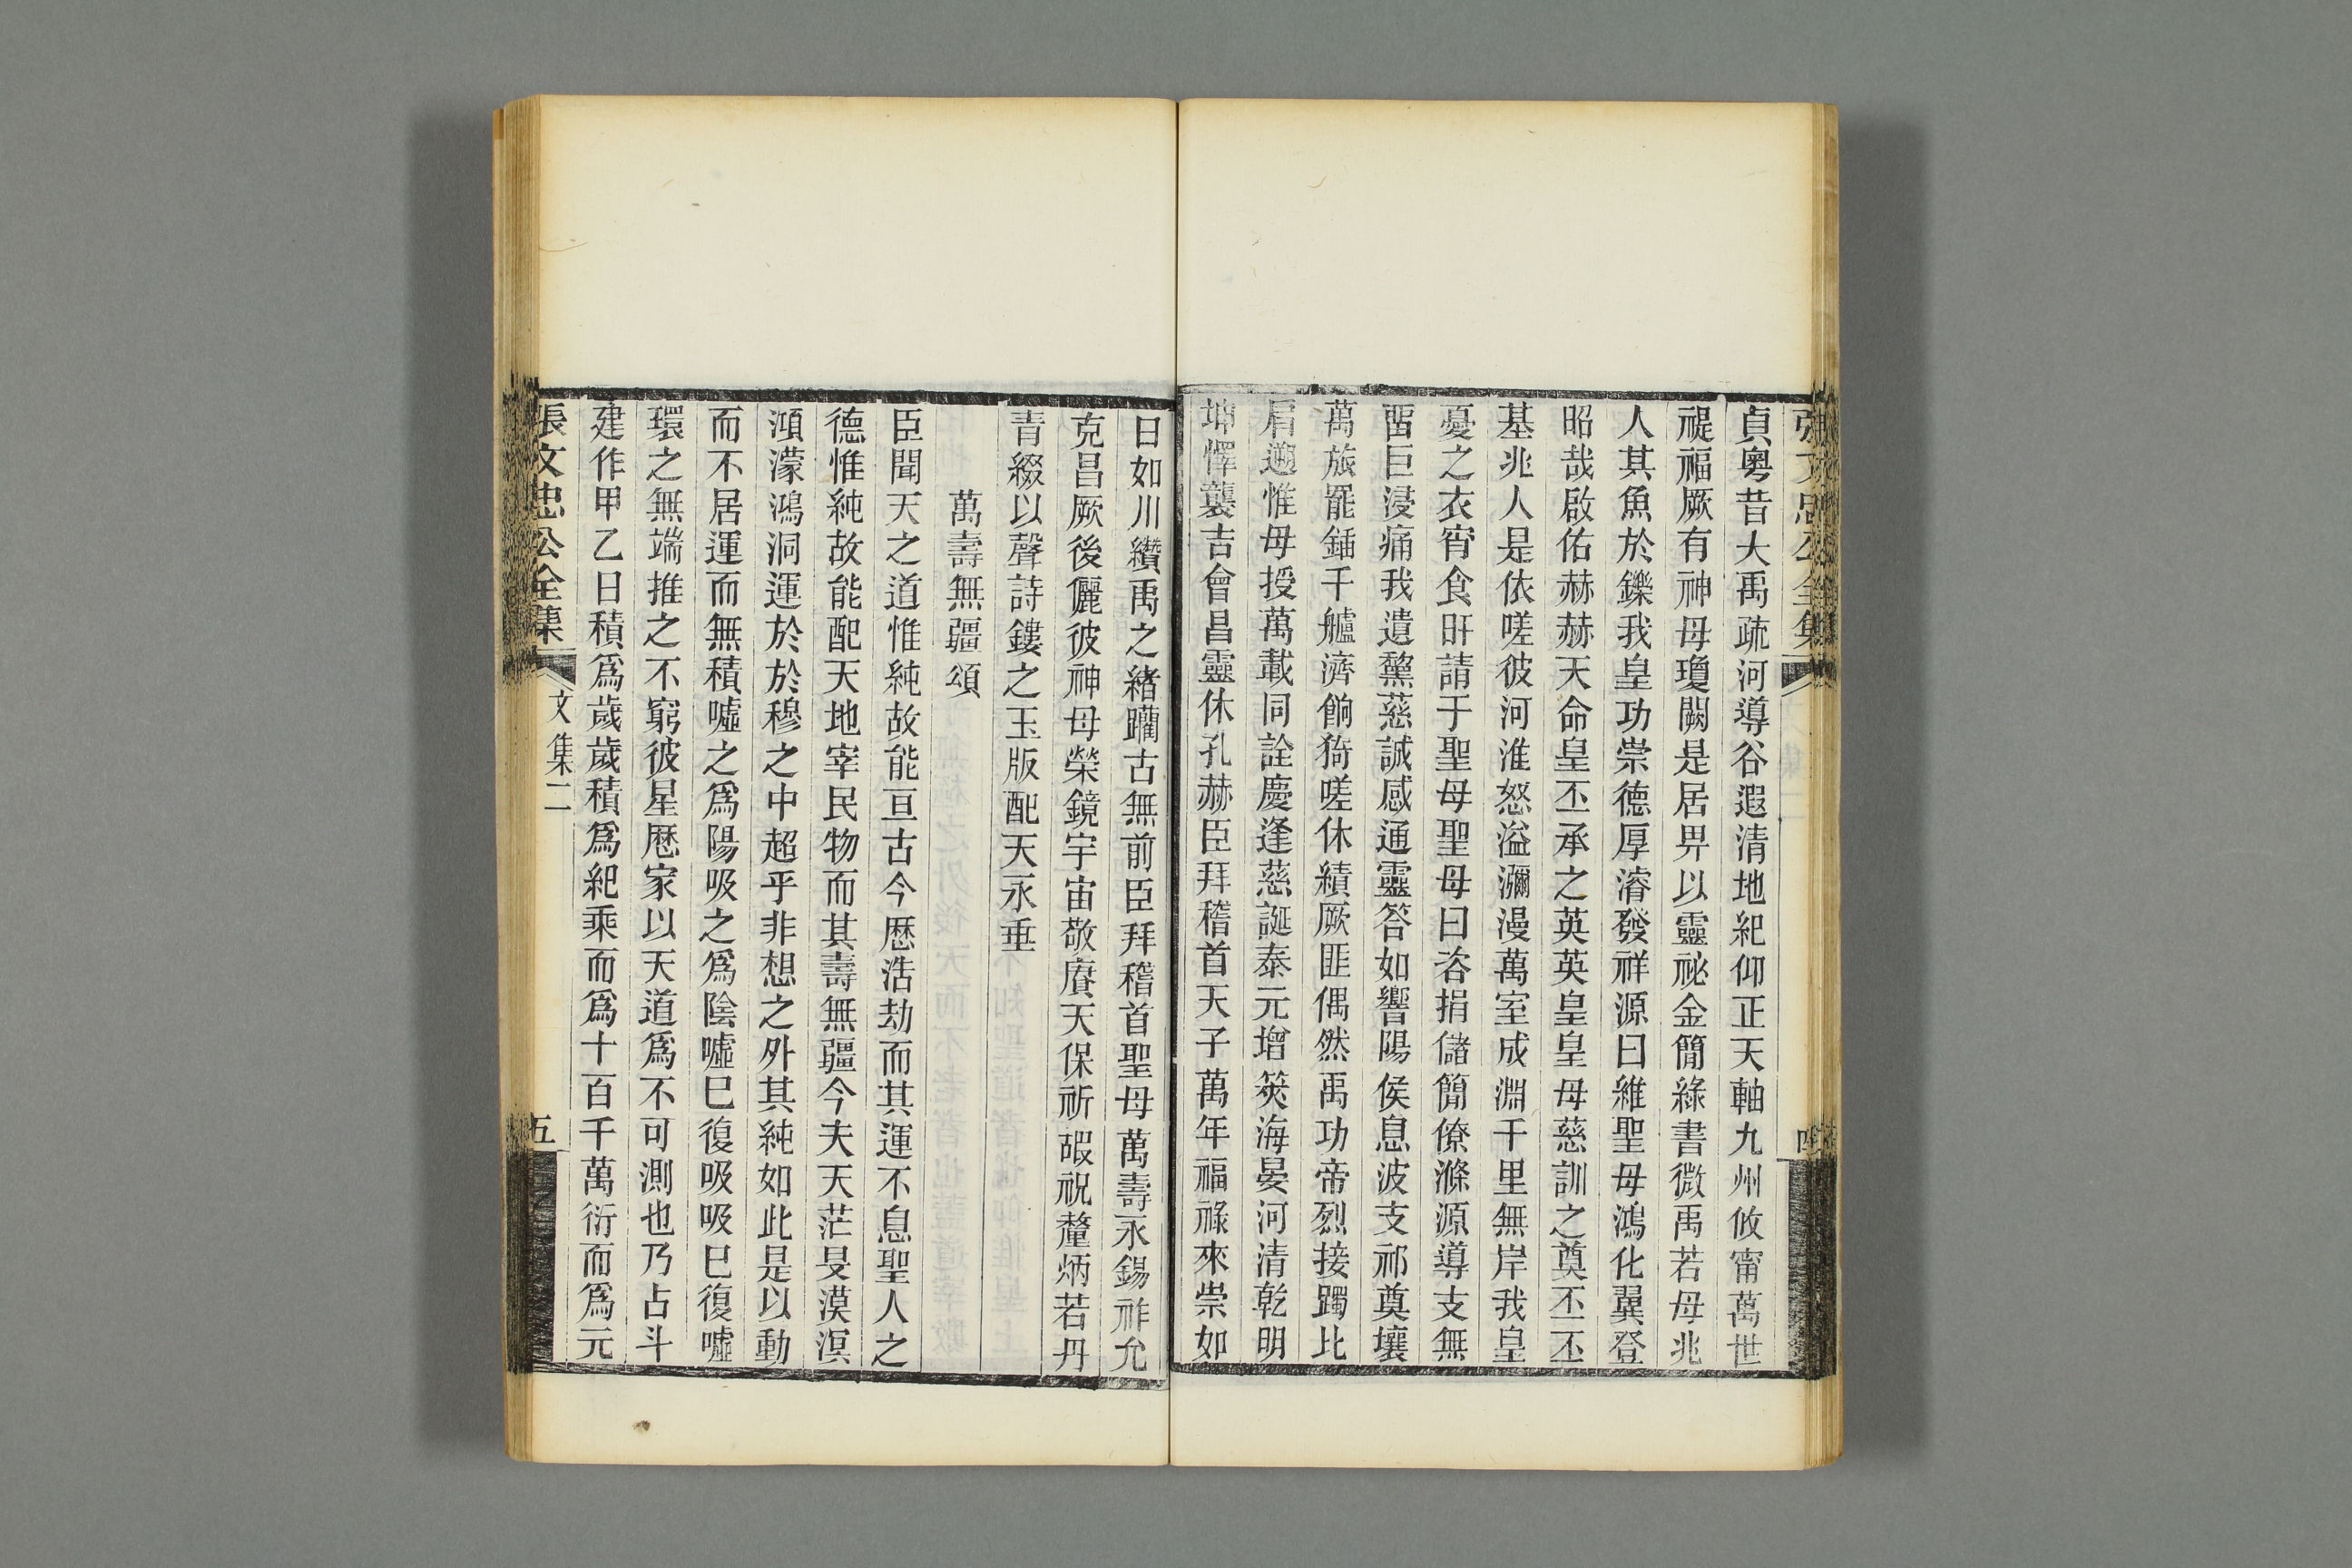 張文忠公全集
四
貞粵昔大禹疏河導谷遐清地紀仰正天軸九州攸甯萬世
禔福厥有神母瓊闕是居畀以靈祕金簡綠書微禹若母兆
人其魚於鑠我皇功崇德厚濬發祥源曰維聖母鴻化翼登
昭哉啟佑赫赫天命皇丕承之英英皇皇母慈訓之奠丕丕
基兆人是依嗟彼河淮怒溢瀰漫萬室成淵千里無岸我皇
憂之衣宵食旰請于聖母聖母曰咨捐儲簡僚滌源導支無
畱巨浸痛我遺黧慈誠感通靈答如響陽侯息波支祁奠壤
萬旅罷鍤千艫濟餉猗嗟休績厥匪偶然禹功帝烈接躅比
肩遡惟母授萬載同詮慶逢慈誕泰元增筴海晏河清乾明
坤懌襲吉會昌靈休孔赫臣拜稽首天子萬年福祿來崇如
日如川纘禹之緒躪古無前臣拜稽首聖母萬壽永錫祚允
克昌厥後儷彼神母榮鏡宇宙敬賡天保祈嘏祝釐炳若丹
青綴以聲詩鏤之玉版配天永垂
萬壽無疆頌
臣聞天之道惟純故能亘古今歷浩劫而其運不息聖人之
德惟純故能配天地宰民物而其壽無疆今夫天茫旻漠溟
澒濛鴻洞運於於穆之中超乎非想之外其純如此是以動
而不居運而無積噓之爲陽吸之爲陰噓巳復吸吸巳復噓
環之無端推之不窮彼星厯家以天道爲不可測也乃占斗
建作甲乙日積爲歲歲積爲紀乘而爲十百千萬衍而爲元
張文忠公全集
文集二
五